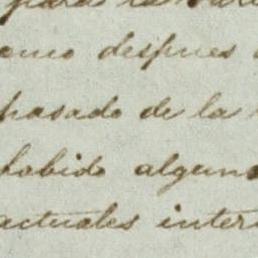 para la
como despues
pasado de la
habido algun
actuales inter